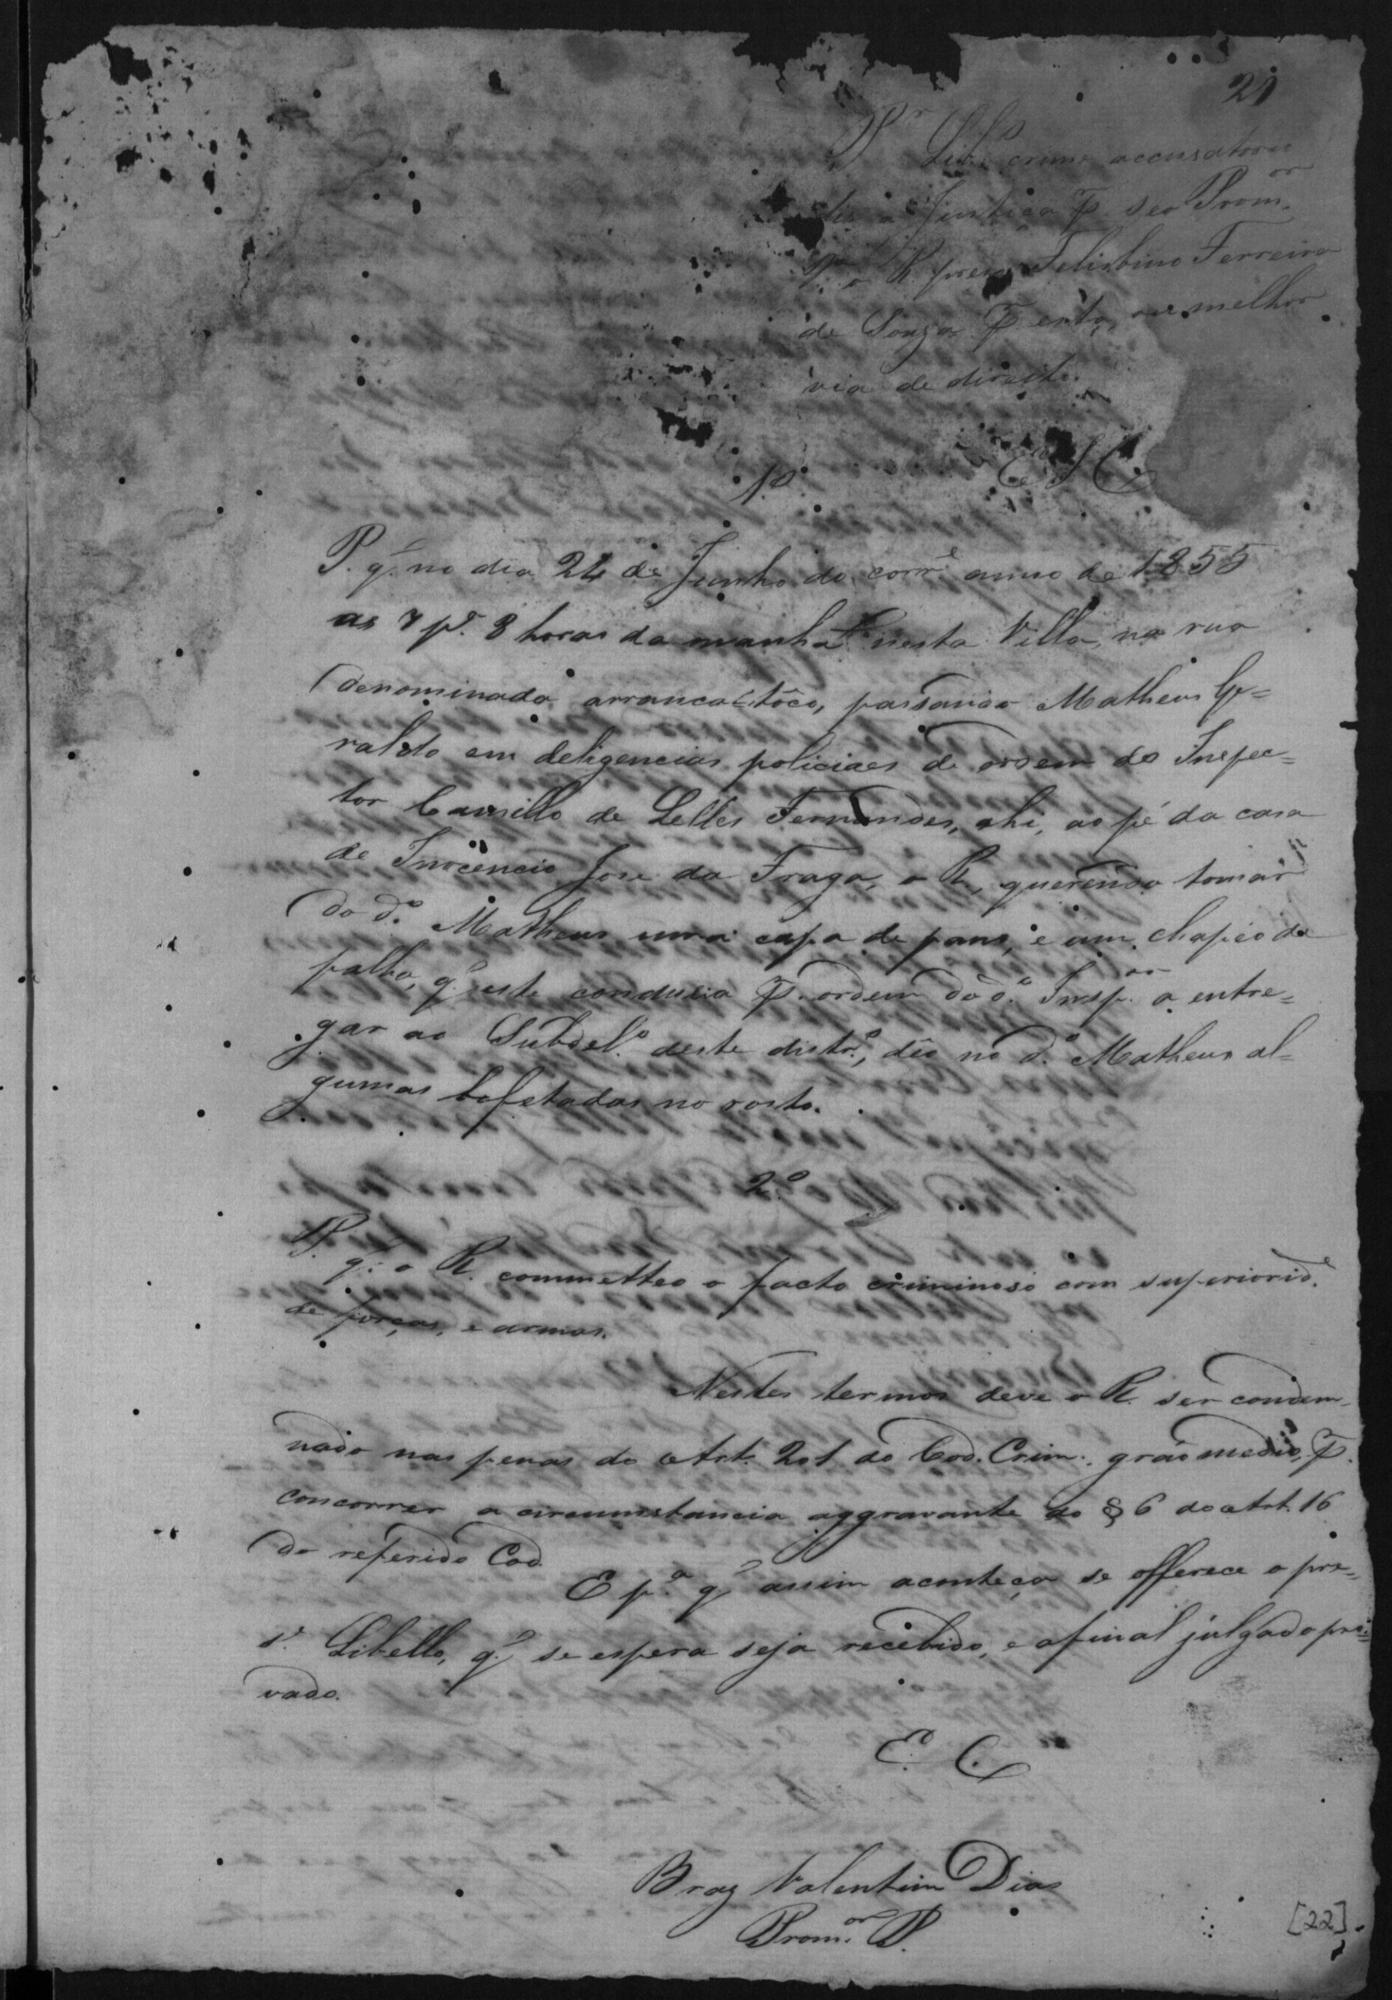 21
P.r Lib.o crime accusatorio
diz a Justiça p. seo Prom.or
c.a o R. preso Felisbino Ferreira
de Souza p. esta, ou melhor
via de direito.
E. S. C.
1.o
P. q.' no dia 24 de Junho do corr.e anno de 1855
as 7 p.a 8 horas da manhã nesta Villa, na rua
denominada arranca-tôco, passando Matheus Ge=
raldo em deligencias policiaes de ordem do Inspec=
tor Camillo de Lelles Fernandes, ahi, ao pé da casa
de Innocencio Jose da Fraga, o R. querendo tomar
do d.o Matheus uma capa de pano, e um chapéo de
palha, q.' este condusia p. ordem do d.o Insp.or a entre=
gar ao Subdel.o deste distr.o, déo no d.o Matheus al=
gumas bofetadas no rosto.
2.o
P. q.' o R. commetteo o facto criminoso com superiorid.e
de forças, e armas.
Nestes termos deve o R. ser condem-
nado nas penas do Art. 201 do Cod. Crim., gráo medio, p.
concorrer a circumstancia aggravante do § 6 do Art. 16
do referido Cod.
E p.a q.' assim aconteça se offerece o pre=
s.e Libello, q.' se espera seja recebido, e afinal julgado pro=
vado.
E. C.
Braz Valentim Dias
Prom.or P.
[22]